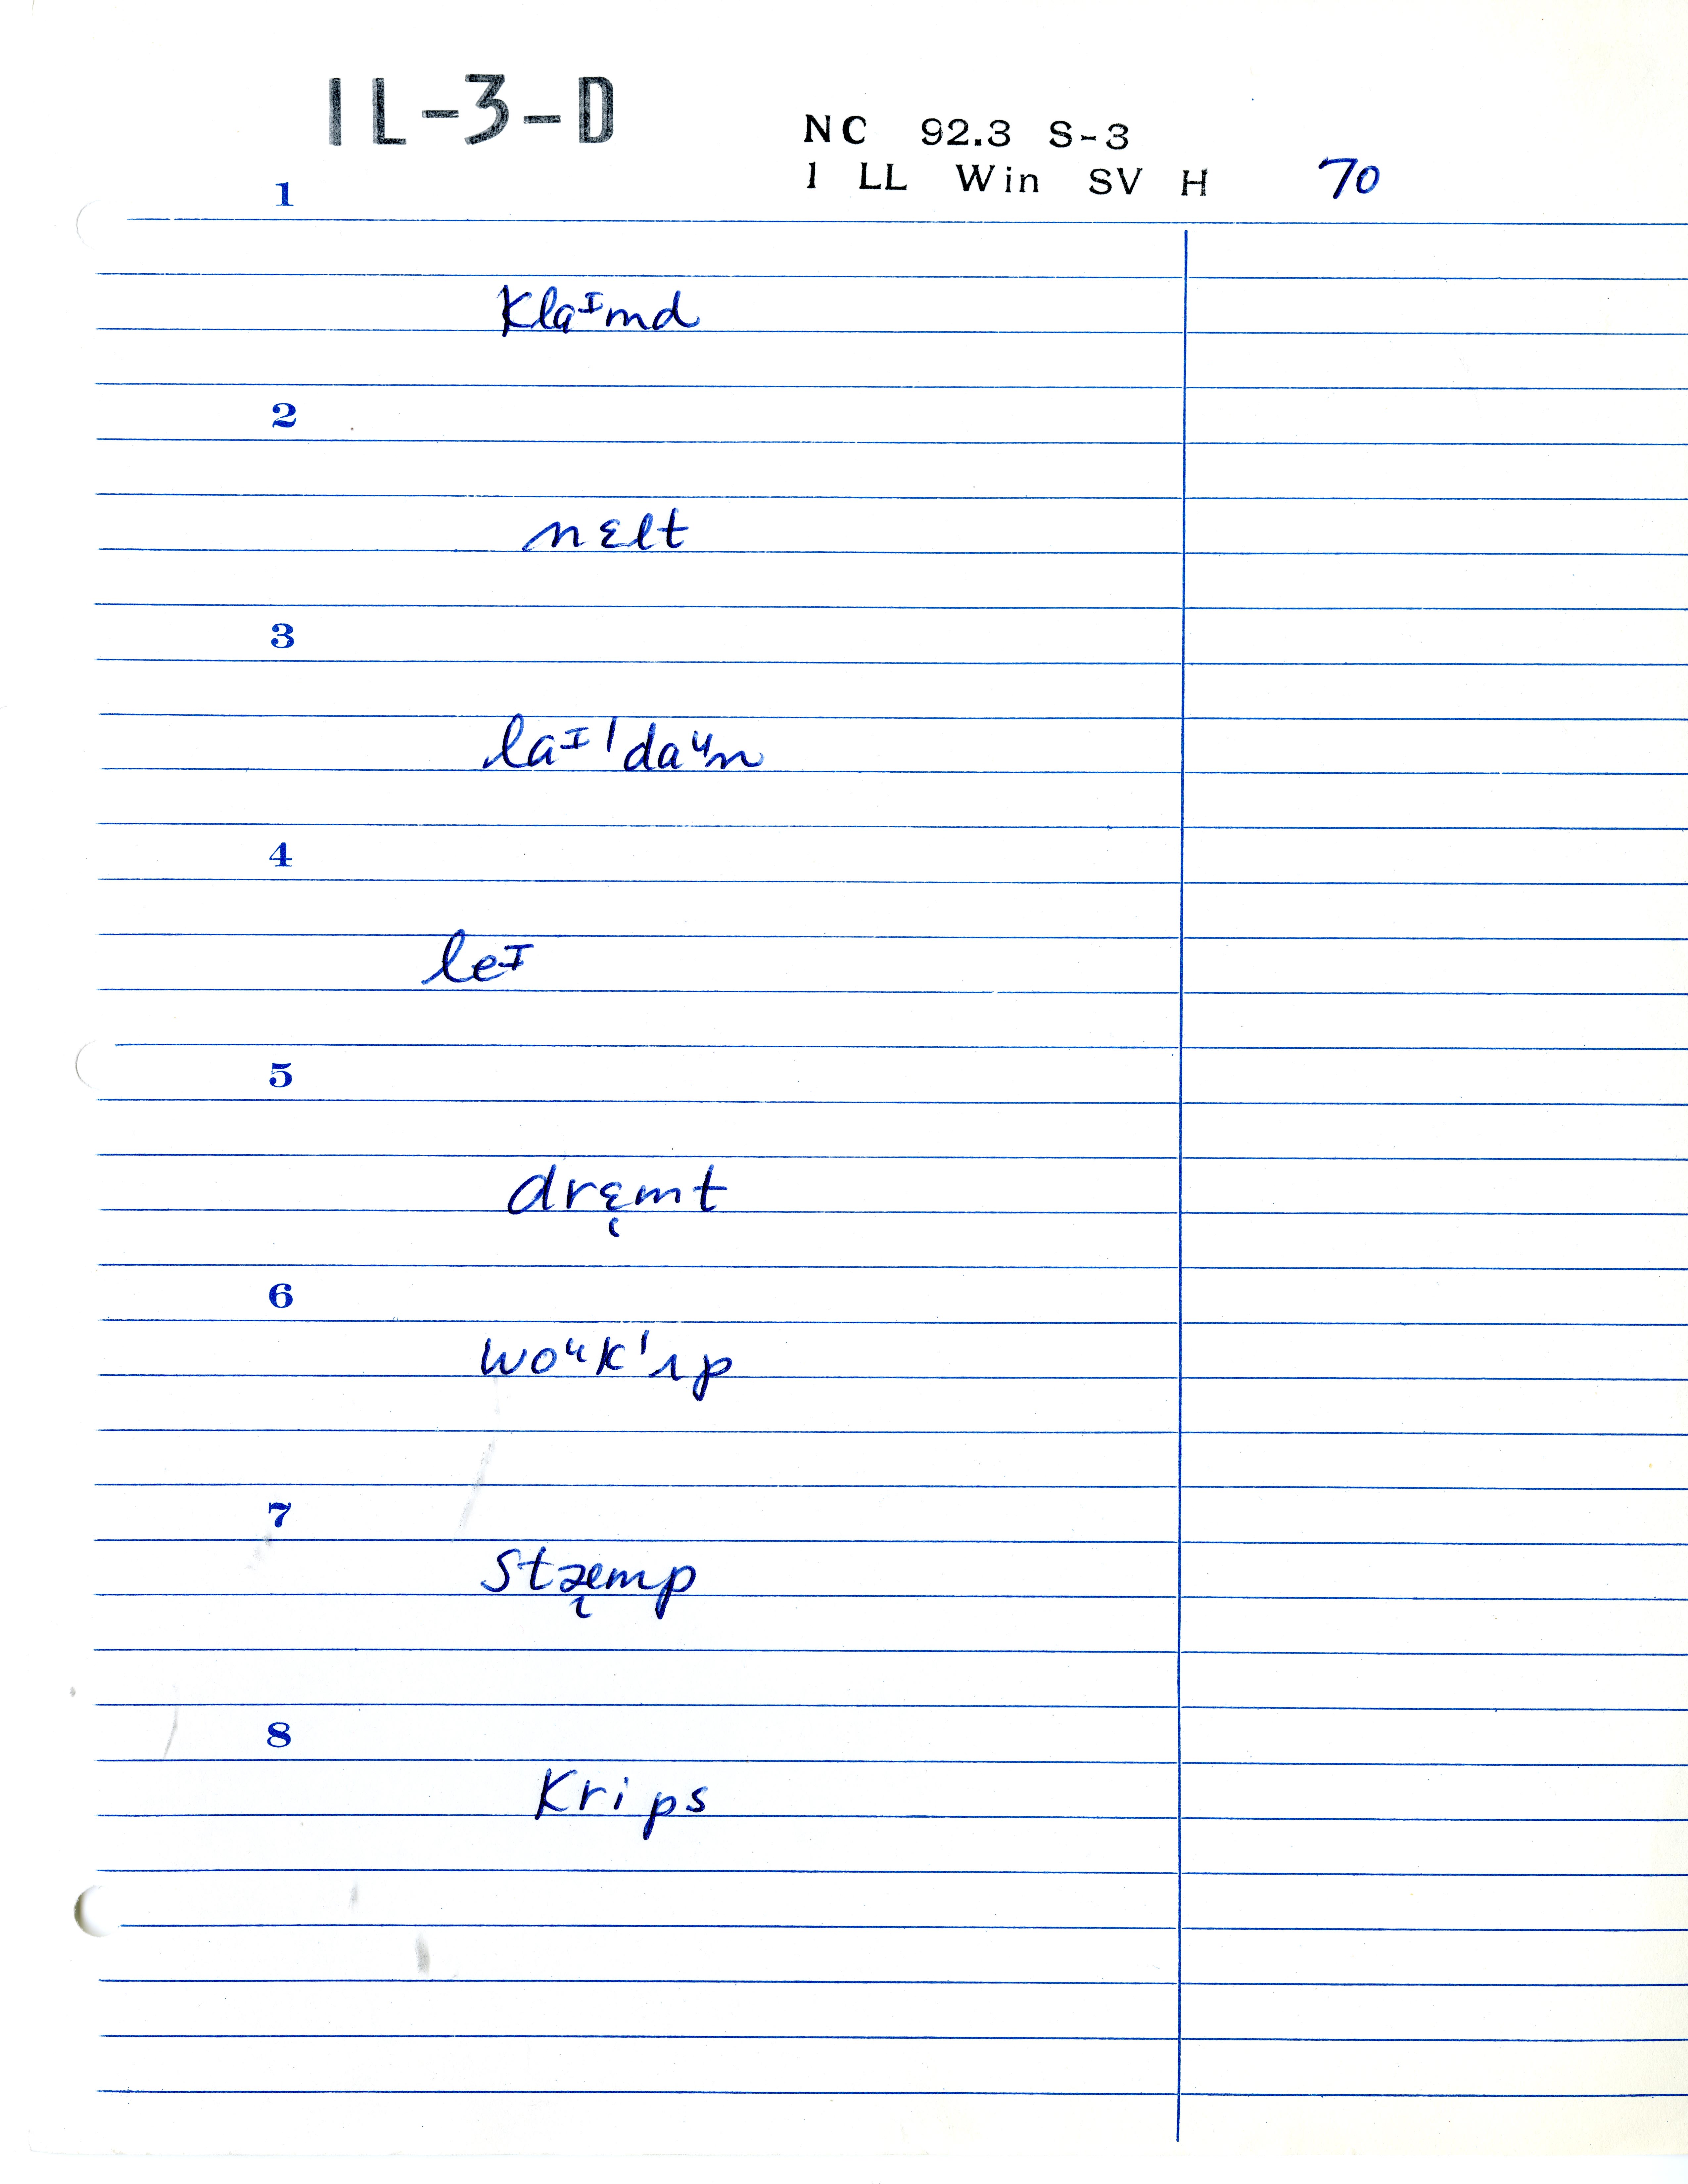 IL-3-D
NC 92.3 S-3
1 LL Win SV H 70
1
klaᶦmd
2
nɛlt
3
laᶦ'daᶸn
4
leᶦ
5
drɛ̨mt
6
woᶸk'ɪp
7
stæ̨mp
8
krips